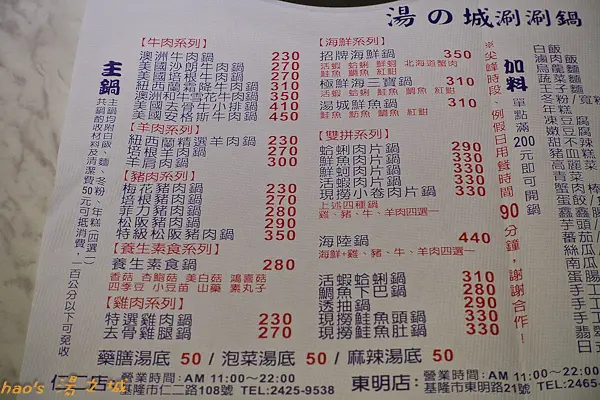 湯の城涮涮鍋
主鍋
主鍋均附白飯、麵、冬粉、年糕(四選一)
共鍋酌收材料及清潔費50元可抵消費,一百公分以下可免收
【牛肉系列】
澳洲牛肉鍋 230
美國沙朗牛肉鍋 270
美國培根牛肉鍋 270
紐西蘭霜降牛肉鍋 310
澳洲和牛雪花牛肉鍋 350
美國去骨牛小排鍋 410
美國安格斯牛肉鍋 450
【羊肉系列】
紐西蘭精選羊肉鍋 230
培根羊肉鍋 270
羊肩肉鍋 300
【豬肉系列】
梅花豬肉鍋 230
培根豬肉鍋 270
菲力豬肉鍋 280
松阪豬肉鍋 290
特級松阪豬肉鍋 350
【養生素食系列】
養生素食鍋 280
香菇 杏鮑菇 美白菇 鴻喜菇
四季豆 小豆苗 山藥 素丸子
【雞肉系列】
特選雞肉鍋 230
去骨雞腿鍋 270
【海鮮系列】
招牌海鮮鍋 350
活蝦 蛤蜊 鮮蚵 北海道蟹肉
鮭魚 鯛魚 紅魽
極鮮海三寶鍋 310
活蝦 蛤蜊 鮮蚵 鮭魚 鯛魚 紅魽
湯城鮮魚鍋 310
鮭魚 鯛魚 紅魽
【雙拼系列】
蛤蜊肉片鍋 290
鮮魚肉片鍋 330
鮮蚵肉片鍋 330
活蝦肉片鍋 330
現撈小卷肉片鍋 330
上述四種鍋
雞、豬、牛、羊肉四選一
海陸鍋 440
海鮮+雞、豬、牛、羊肉四選一
活蝦蛤蜊鍋 310
鯛魚下巴鍋 280
透抽鍋 290
現撈鮭魚頭鍋 330
現撈鮭魚肚鍋 330
※尖峰時段、例假日用餐時間90分鐘,謝謝合作!
加料
單點滿200元即可開鍋
白飯
滷肉飯
烏龍麵
蔬菜麵
王子麵
冬粉/寬粉
年糕
凍豆腐
嫩豆腐
甜不辣
豬血糕
高麗菜
藥膳湯底 50 / 泡菜湯底 50 / 麻辣湯底 50
仁二店: 營業時間:AM 11:00~22:00
基隆市仁二路108號 TEL:2425-9538
東明店: 營業時間:AM 11:00~22:00
基隆市東明路21號 TEL:2465-
hao's 湯之城